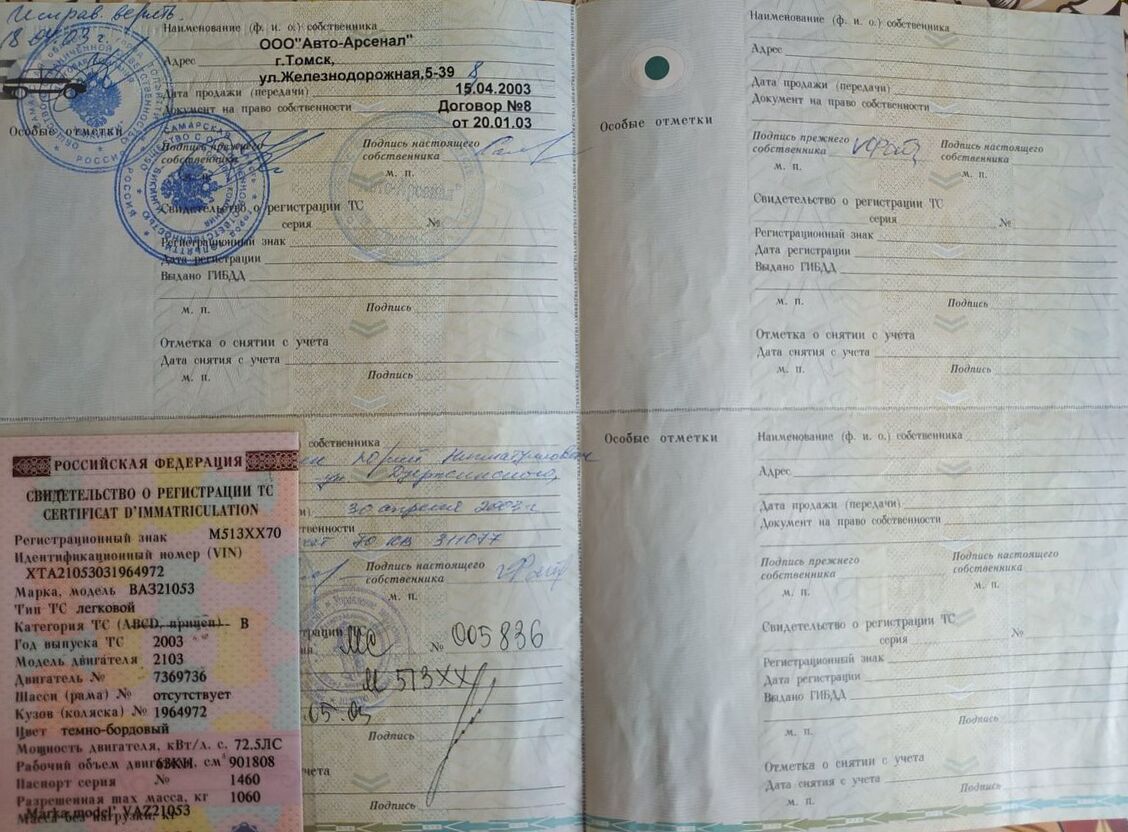 Исправ. верить.
18.04.03 г.
Наименование (ф. и. о.) собственника
ООО"Авто-Арсенал"
Адрес г.Томск,
ул.Железнодорожная,5-39
Дата продажи (передачи) 15.04.2003
Документ на право собственности Договор №8
от 20.01.03
Особые отметки
Подпись прежнего собственника
Подпись настоящего собственника
м. п.
"Авто-Арсенал"
Свидетельство о регистрации ТС
серия №
Регистрационный знак
Дата регистрации
Выдано ГИБДД
м. п. Подпись
Отметка о снятии с учета
Дата снятия с учета
м. п. Подпись
собственника
Юрий
ул Дзержинского,
30 апреля 2003 г
70 КВ 311077
Подпись настоящего
собственника
м. п.
МС № 005836
М 513ХХ
05.03
Подпись
Подпись
РОССИЙСКАЯ ФЕДЕРАЦИЯ
СВИДЕТЕЛЬСТВО О РЕГИСТРАЦИИ ТС
CERTIFICAT D'IMMATRICULATION
Регистрационный знак М513ХХ70
Идентификационный номер (VIN)
XTA21053031964972
Марка, модель ВАЗ21053
Тип ТС легковой
Категория ТС (ABCD, прицеп) B
Год выпуска ТС 2003
Модель двигателя 2103
Двигатель № 7369736
Шасси (рама) № отсутствует
Кузов (коляска) № 1964972
Цвет темно-бордовый
Мощность двигателя, кВт/л. с. 72.5ЛС
Рабочий объем двигателя, см³ 901808
63КН
Паспорт серия № 1460
Разрешенная max масса, кг 1060
Масса без нагрузки, кг
Marka,model' VAZ21053
Наименование (ф. и. о.) собственника
Адрес
Дата продажи (передачи)
Документ на право собственности
Особые отметки
Подпись прежнего собственника
Подпись настоящего собственника
м. п. м. п.
Свидетельство о регистрации ТС
серия №
Регистрационный знак
Дата регистрации
Выдано ГИБДД
м. п. Подпись
Отметка о снятии с учета
Дата снятия с учета
м. п. Подпись
Особые отметки
Наименование (ф. и. о.) собственника
Адрес
Дата продажи (передачи)
Документ на право собственности
Подпись прежнего собственника
Подпись настоящего собственника
м. п. м. п.
Свидетельство о регистрации ТС
серия №
Регистрационный знак
Дата регистрации
Выдано ГИБДД
Подпись
м. п.
Отметка о снятии с учета
Дата снятия с учета
м. п. Подпись